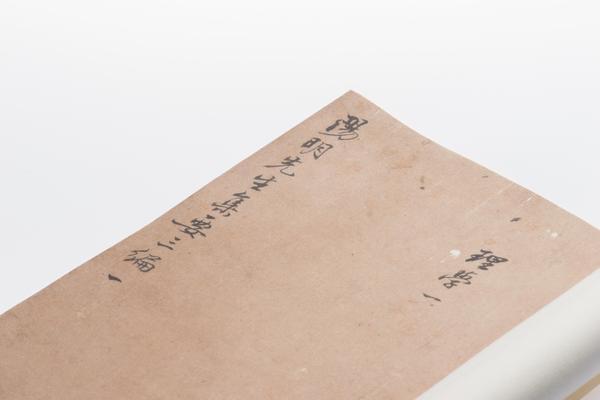 理學
陽明先生集要三編 一